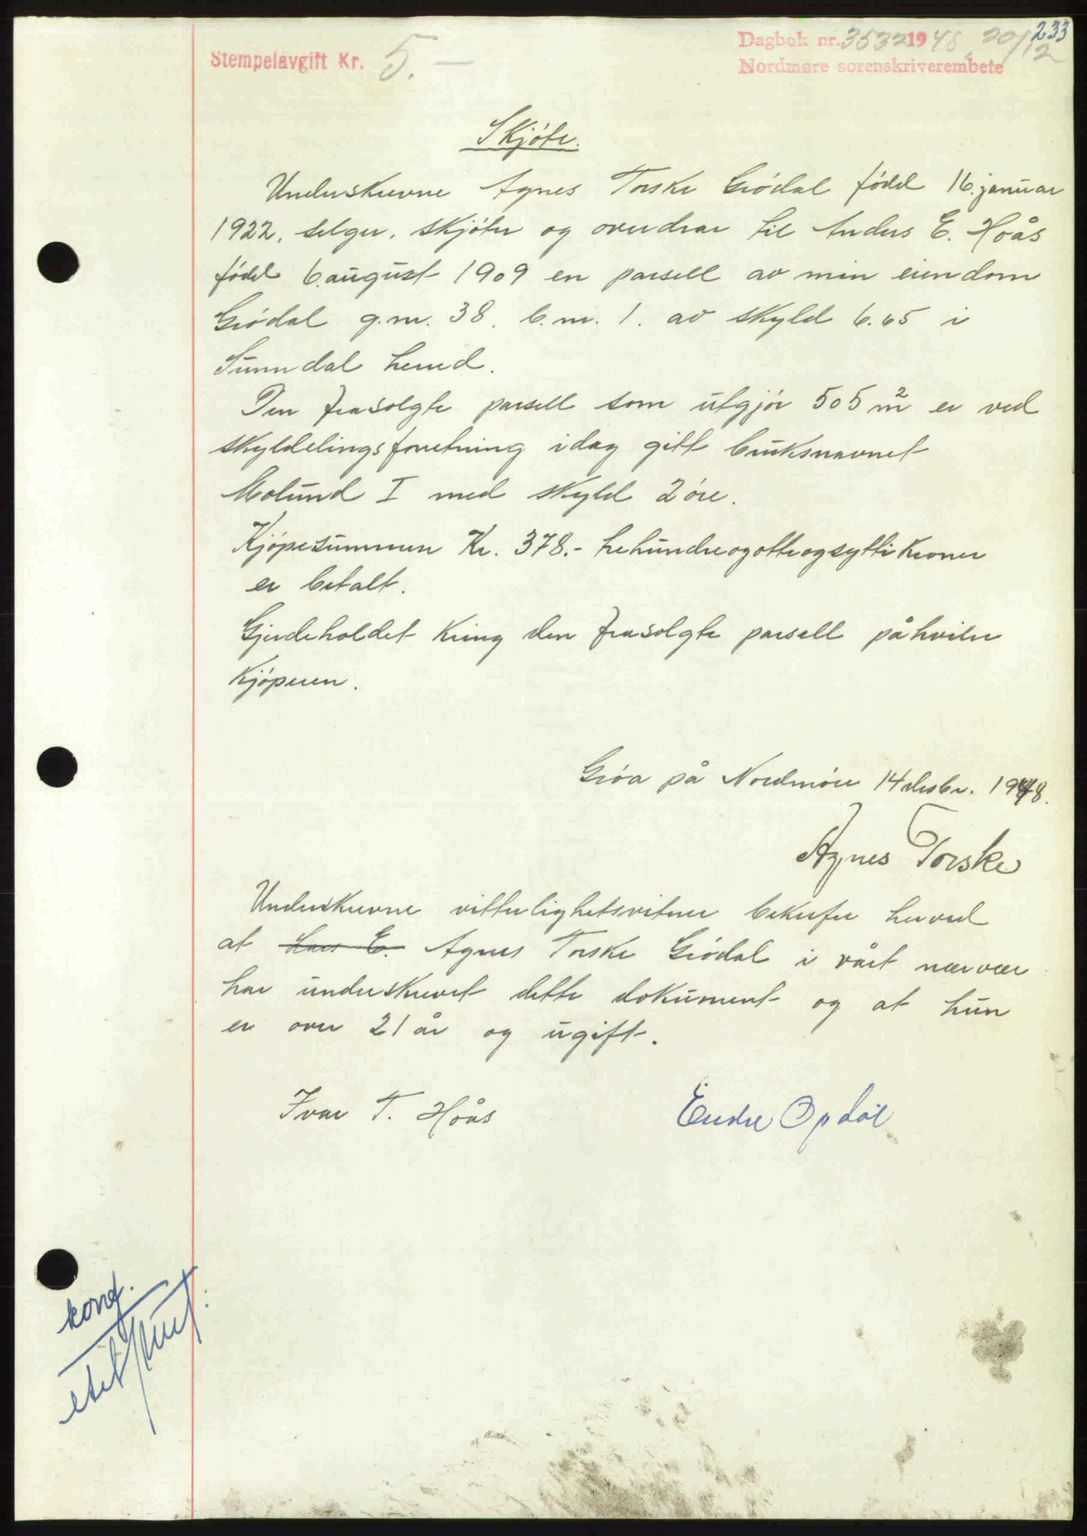 233
Stempelavgift Kr. 5.-
Dagbok nr. 3532 1948 20/12
Nordmøre sorenskriverembete
Skjøte.
Underskrevne Agnes Torske Grødal født 16. januar
1922, selger, skjøter og overdrar til Anders E. Hoås
født 6. august 1909 en parsell av min eiendom
Grødal g.nr. 38. b.nr. 1. av skyld 6.65 i
Sunndal herred.
Den frasolgte parsell som utgjør 505 m2 er ved
skyldelingsforretning idag gitt bruksnavnet
Molund I med skyld 2 øre.
Kjøpesummen Kr. 378.- trehundreogotteogsytti kroner
er betalt.
Gjerdeholdet kring den frasolgte parsell påhviler
kjøperen.
Grøa på Nordmøre 14 desbr. 1948.
Agnes Torske
Underskrevne vitterlighetsvitner bekrefter herved
at Lars E. Agnes Torske Grødal i vårt nærvær
har underskrevet dette dokument og at hun
er over 21 år og ugift.
Ivar T. Hoås
Endre Opdøl
konf.